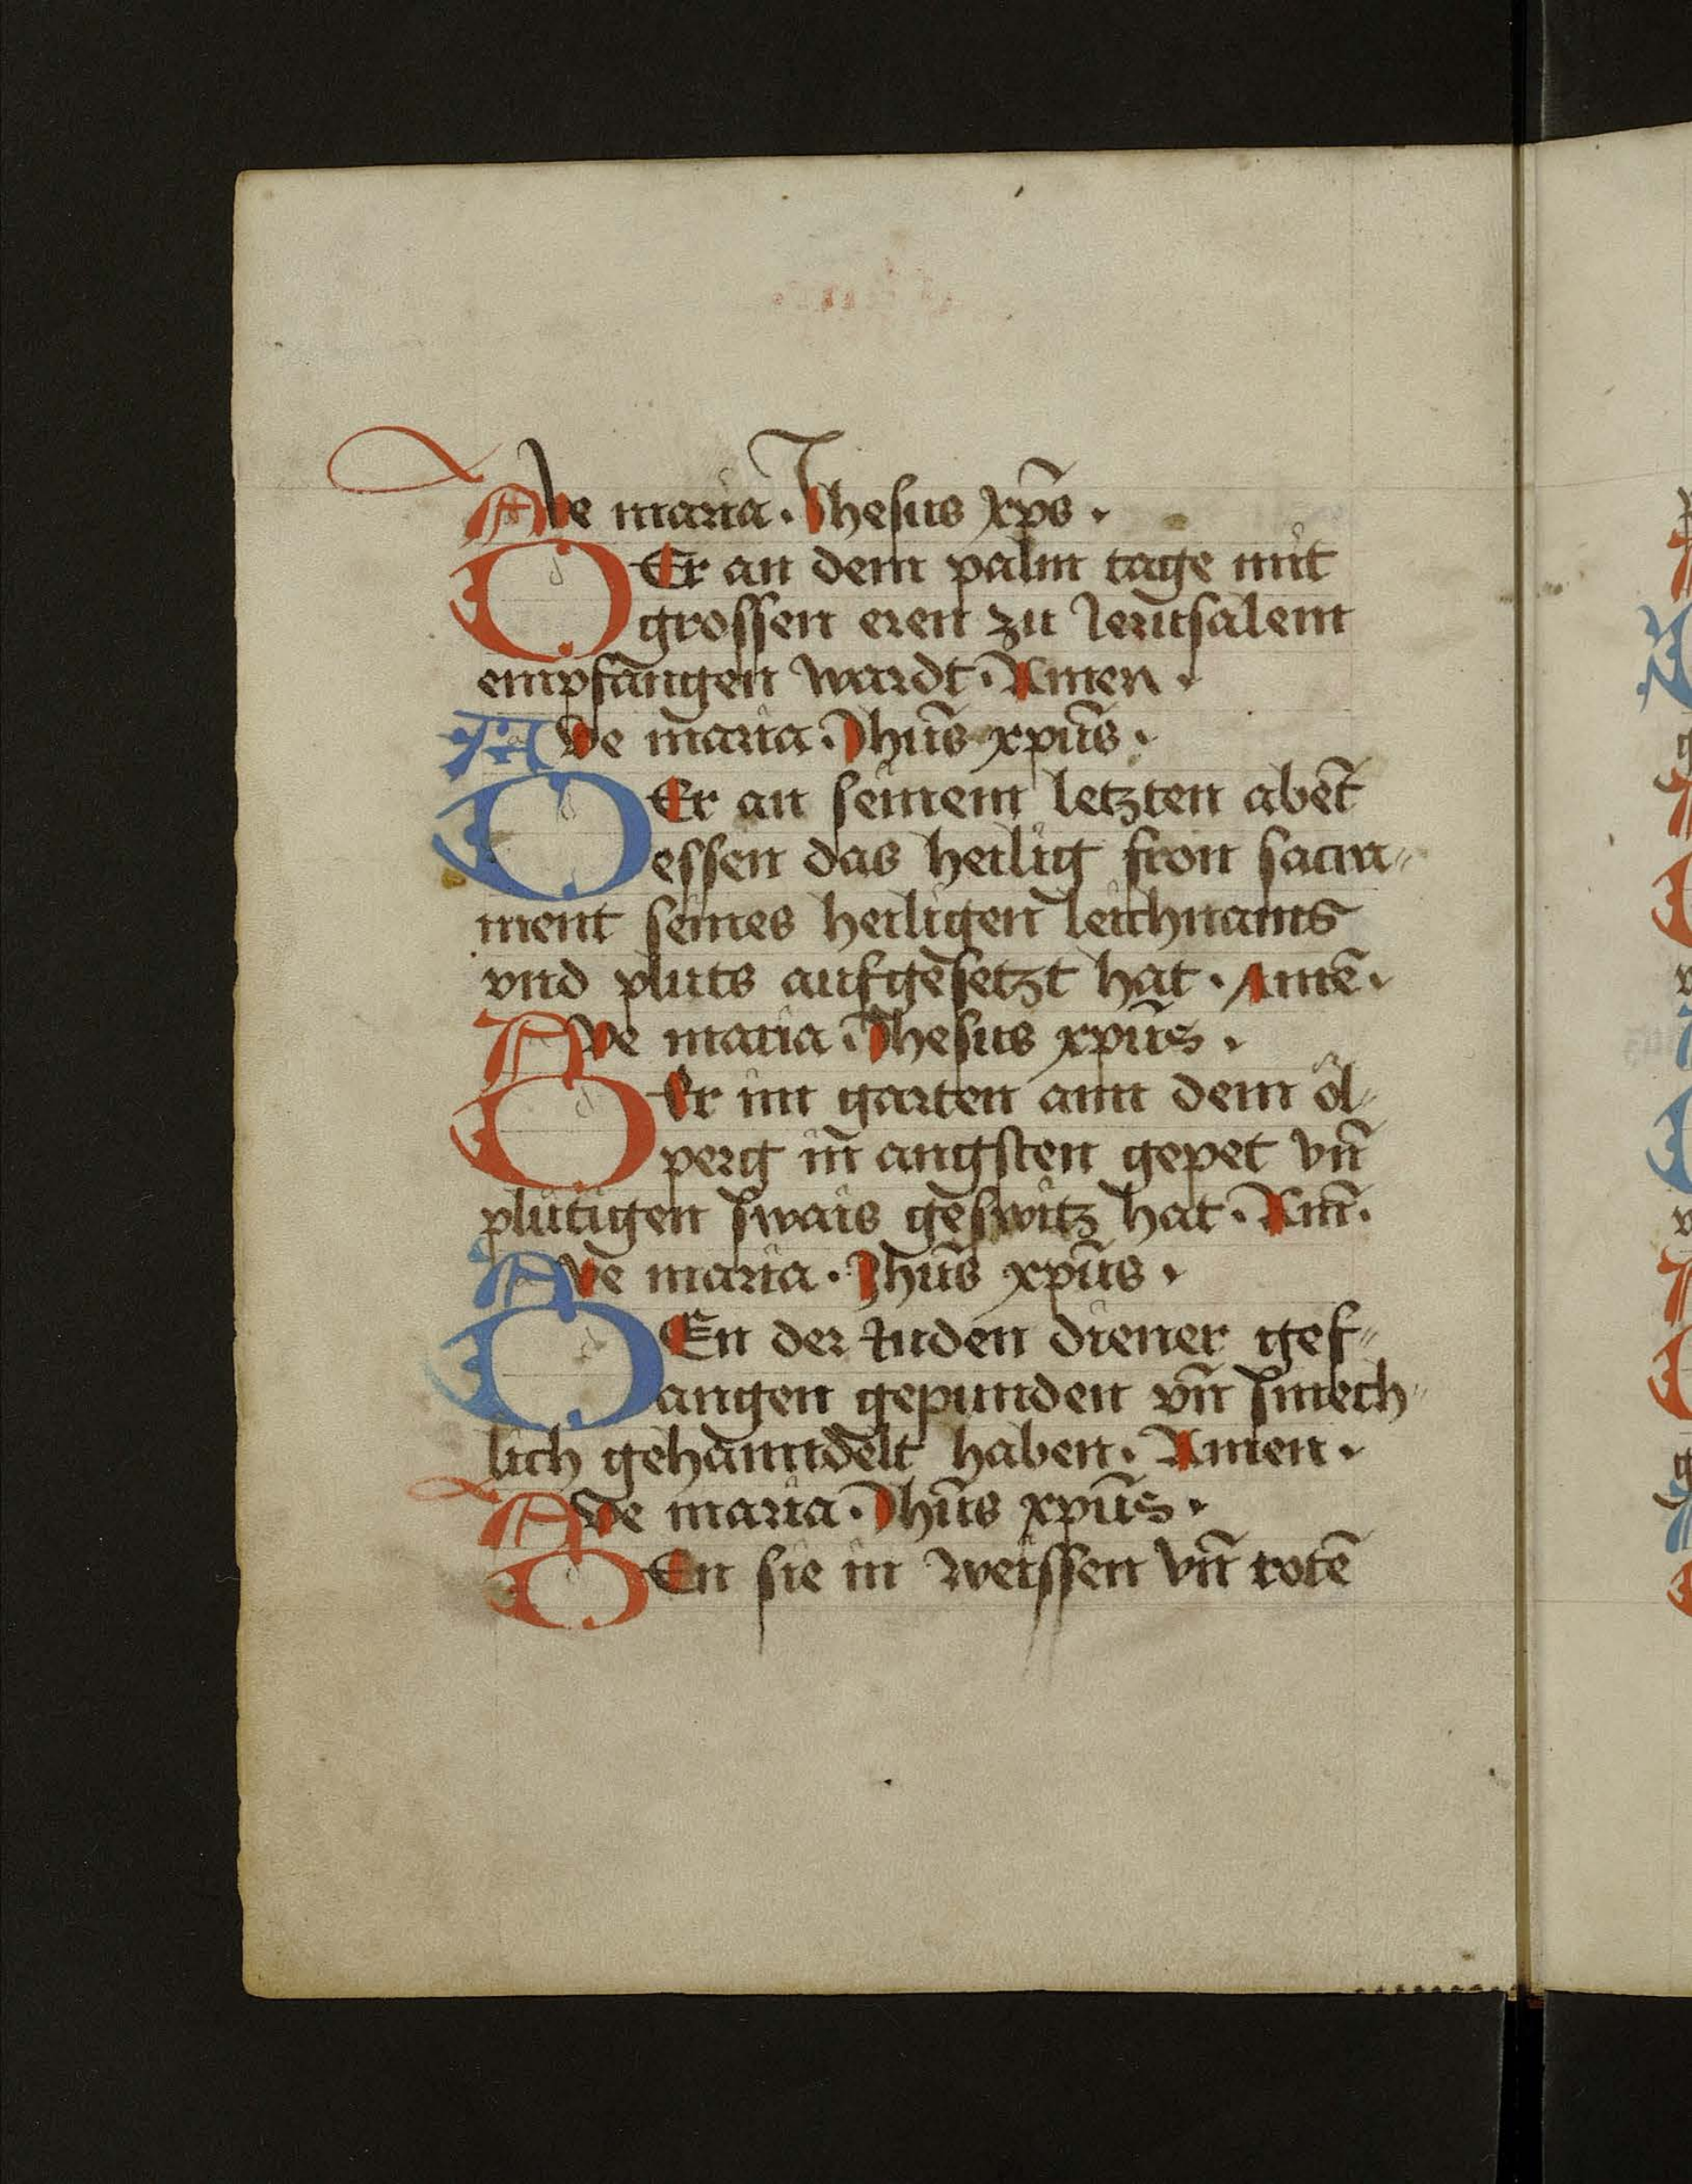 Ave maria. Jhesus xp̄s.
DEr an dem palm tage mit
grossen eren zu Jerusalem
empfangen wardt. Amen.
Ave maria. Jhūs xpūs.
DEr an seinem letzten abēt
essen das heilig fron sacra=
ment seines heiligen leichnams
vnd pluts aufgesetzt hat. Amē.
Ave maria. Jhesus xpūs.
DEr im garten ann dem öl=
perg in̄ angsten gepet vn̄
plütigen swais geswitz hat. Am̄.
Ave maria. Jhūs xpūs.
DEn der Juden diener gef=
angen gepunden vn̄ smech=
lich gehanndelt haben. Amen.
Ave maria. Jhūs xpūs.
DEn sie in weissen vn̄ rotē